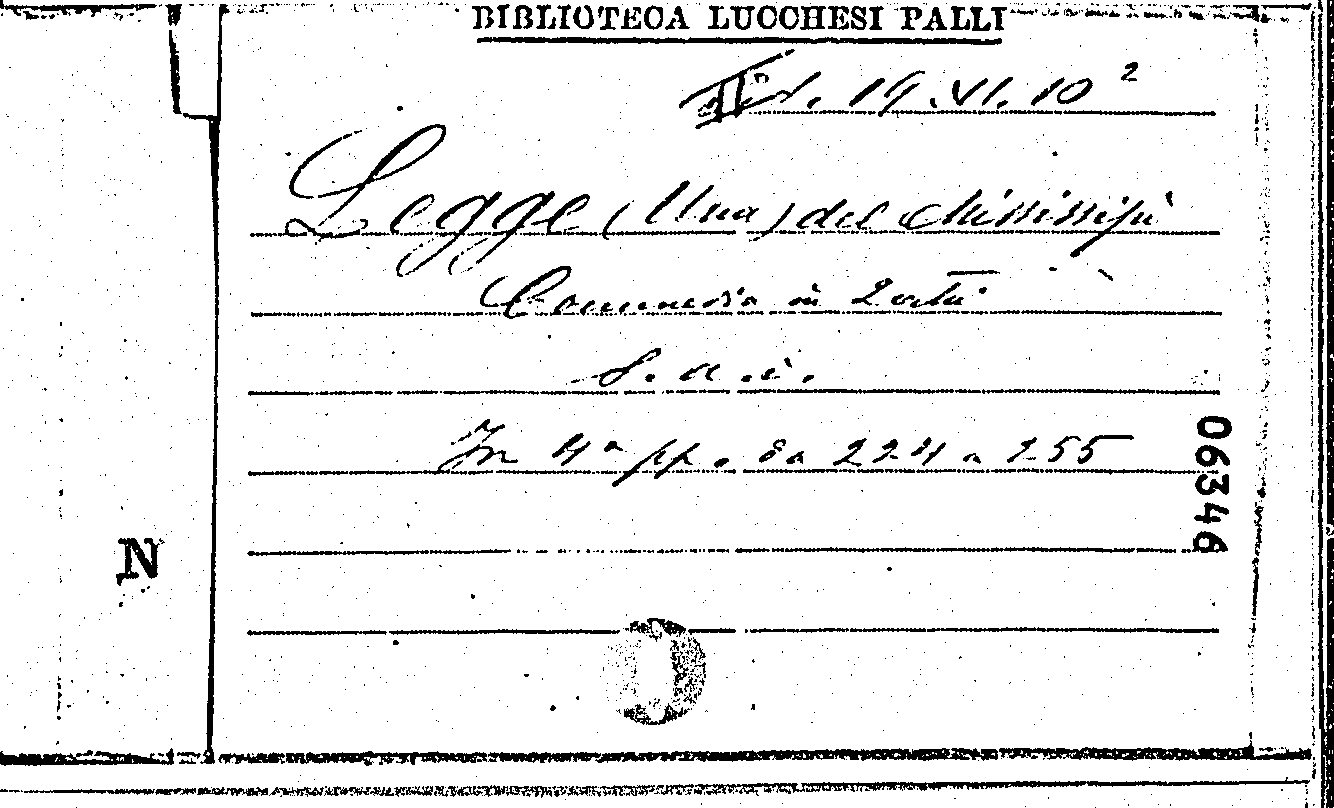 BIBLIOTECA LUCCHESI PALLI
19.VI.10²
Legge (Una) del Mississipì
Commedia in 2 atti
S. a. i.
In 4° pp. da 224 a 255
06346
N